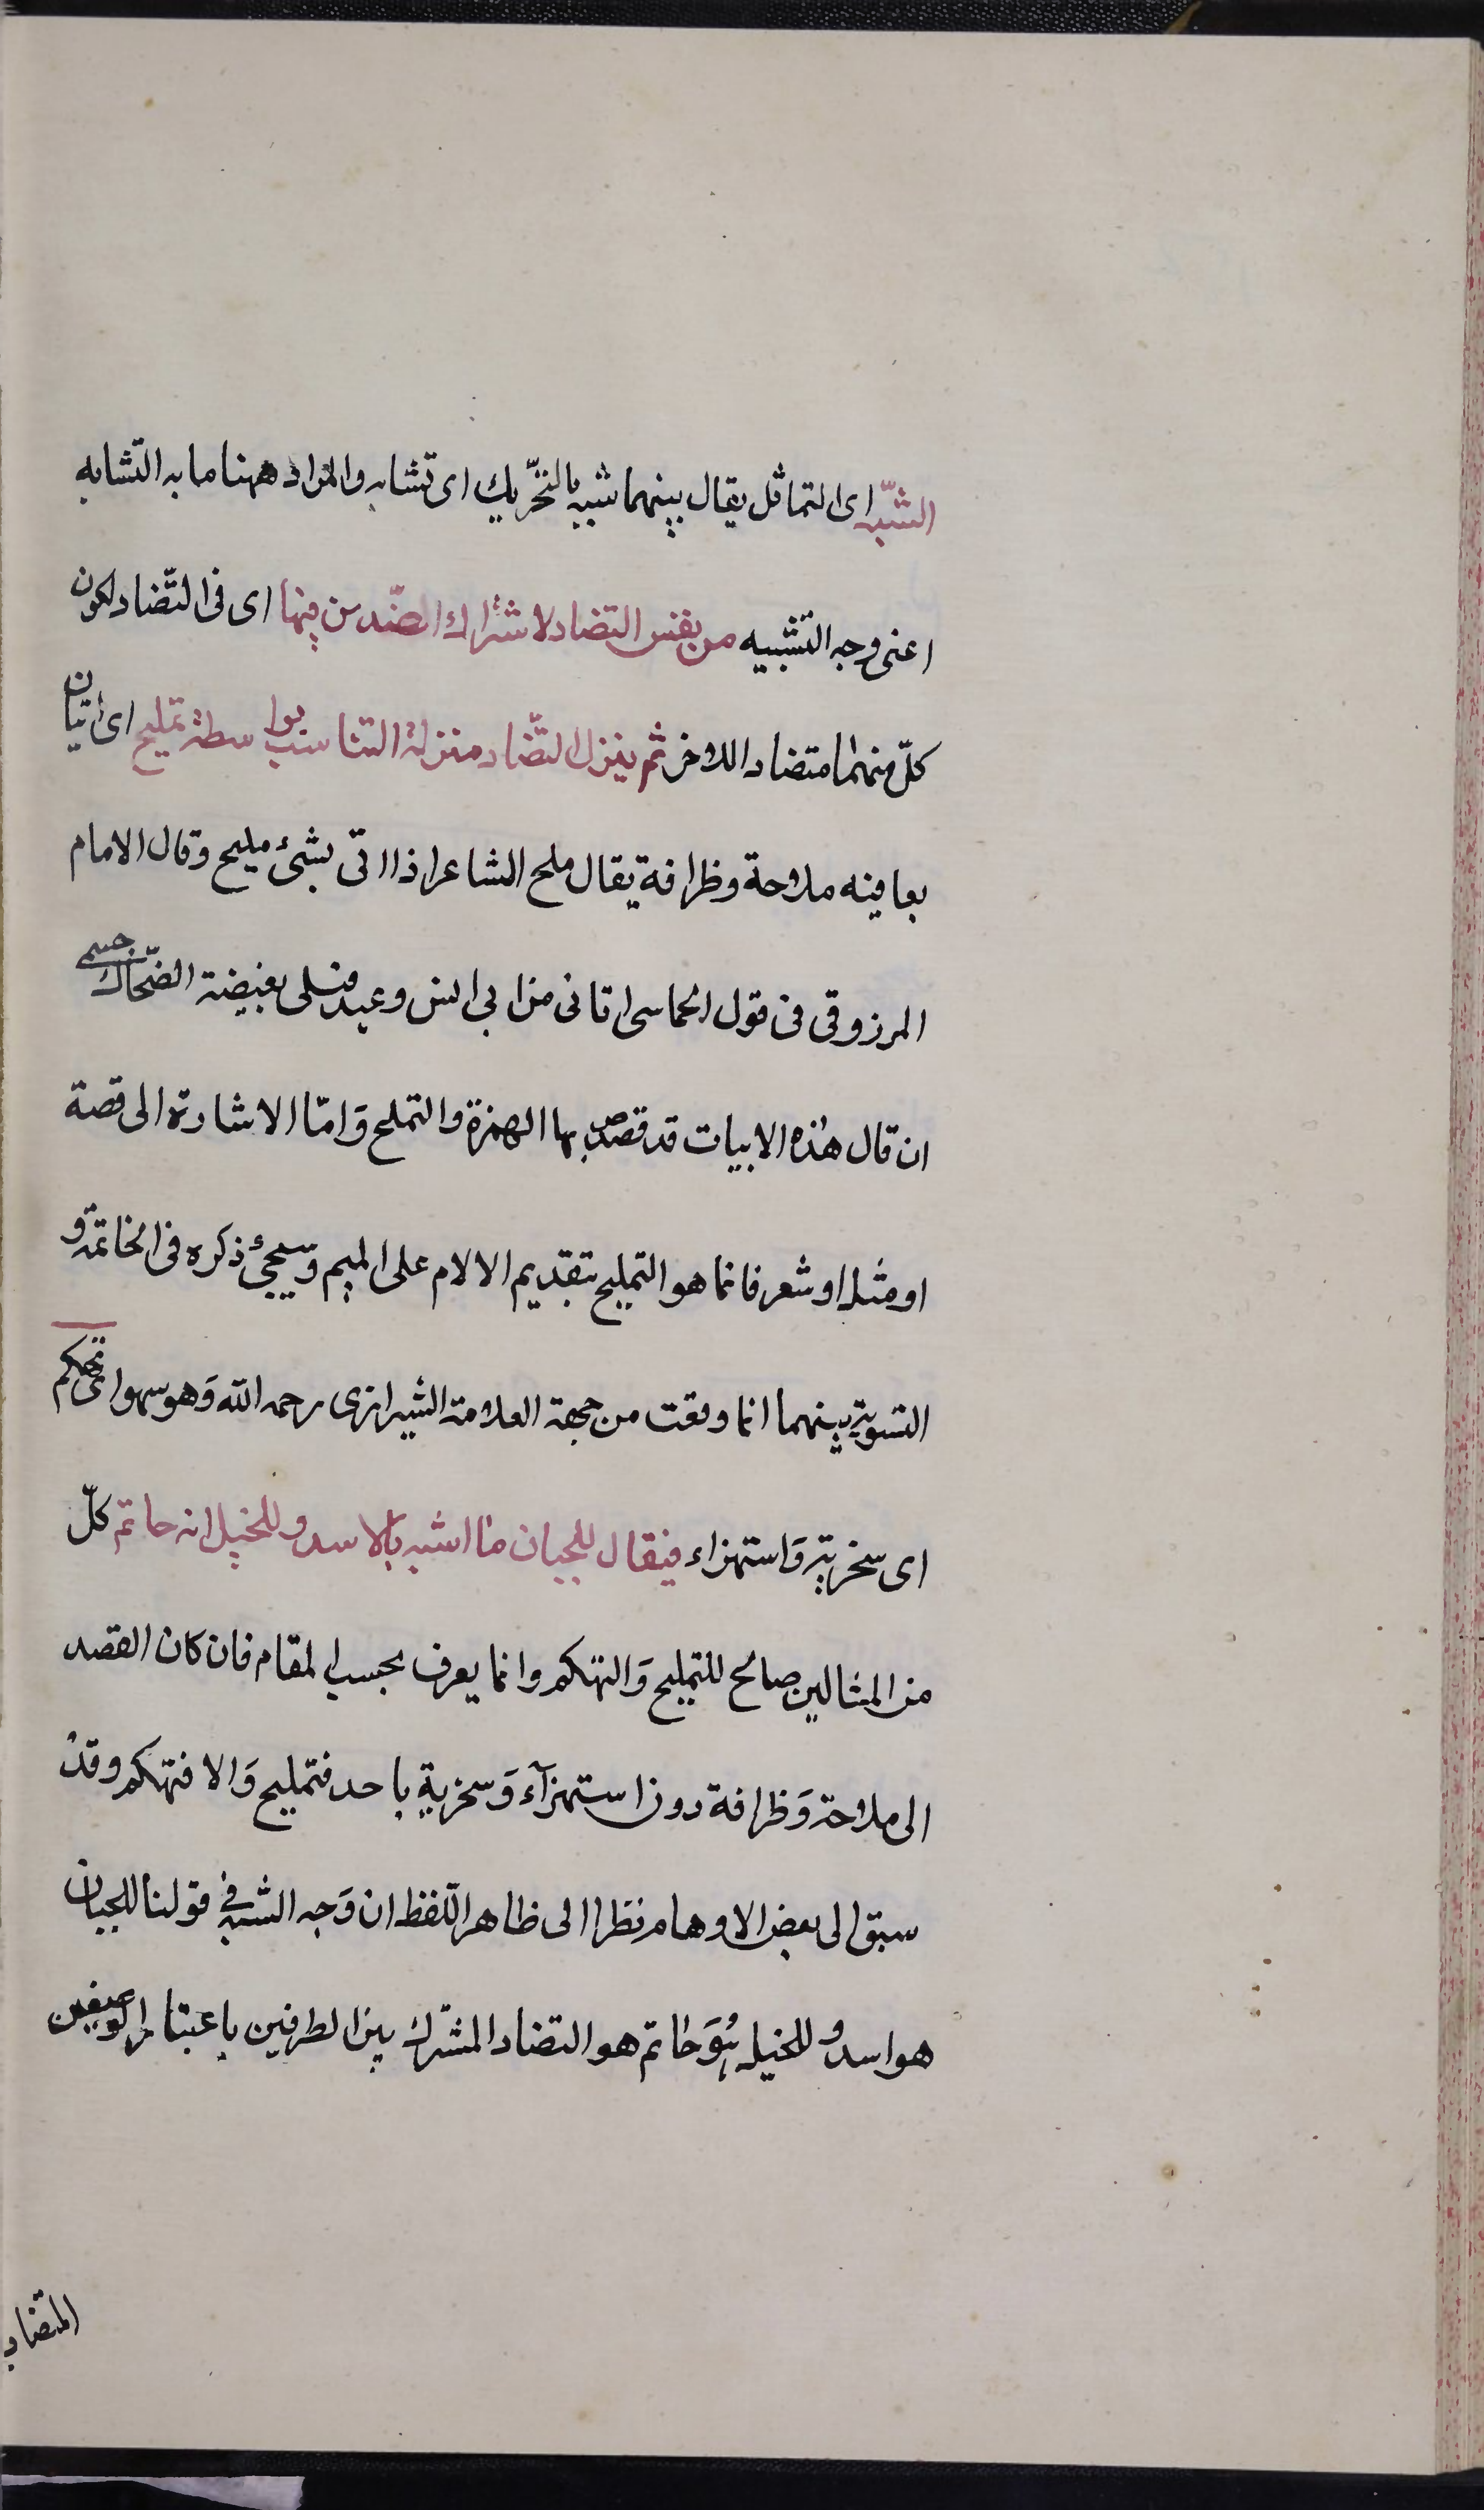 الشّبه اى التماثل يقال بينهما شبه بالتحّريك اى تشابه والمراد ههنا ما به التّشابه
اعنى وجه التّشبيه من نفس التضاد لاشتراك الضّدين فيها اى فى التّضاد لكون
كلّ منهما متضاد اللاخر ثم ينزل التّضاد منزلة التناسب بواسطة تمليح اى اتيان
بما فيه ملاحة وظرافة يقال ملح الشاعر اذا اتى بشئ مليح وقال الامام
المرزوقى فى قول الحماسى اتانى من ابى انس وعيد فسلى بغيضة الضحّاك جسمى
ان قال هذه الابيات قد قصد بها الهمزة والتملح وَامّا الاشارة الى قصة
او مثل او شعر فانما هو التمليح بتقديم الالام على الميم وسيجئ ذكره فى الخاتمة و
التسوية بينهما انما وقعت من جهة العلامة الشيرازى رحمه الله وَهو سهو او تهكم
اى سخرية وَاستهزاء فيقال للجبان ما اشبه بالاسد وللبخيل انه حاتم كلّ
من المثالين صالح للتمليح وَالتهكم وانما يعرف بحسب المقام فان كان القصد
الى ملاحة وَظرافة دون استهزآء وَسخرية باحد فتمليح وَالا فتهكم وقد
سبق الى بعض الاوهام نظرا الى ظاهر اللّفظ ان وَجه الشّبه فى قولنا للجبان
هو اسد وللبخيل هُوَ حاتم هو التضاد المشترك بين الطرفين باعتبار الوصفين
المتضاد